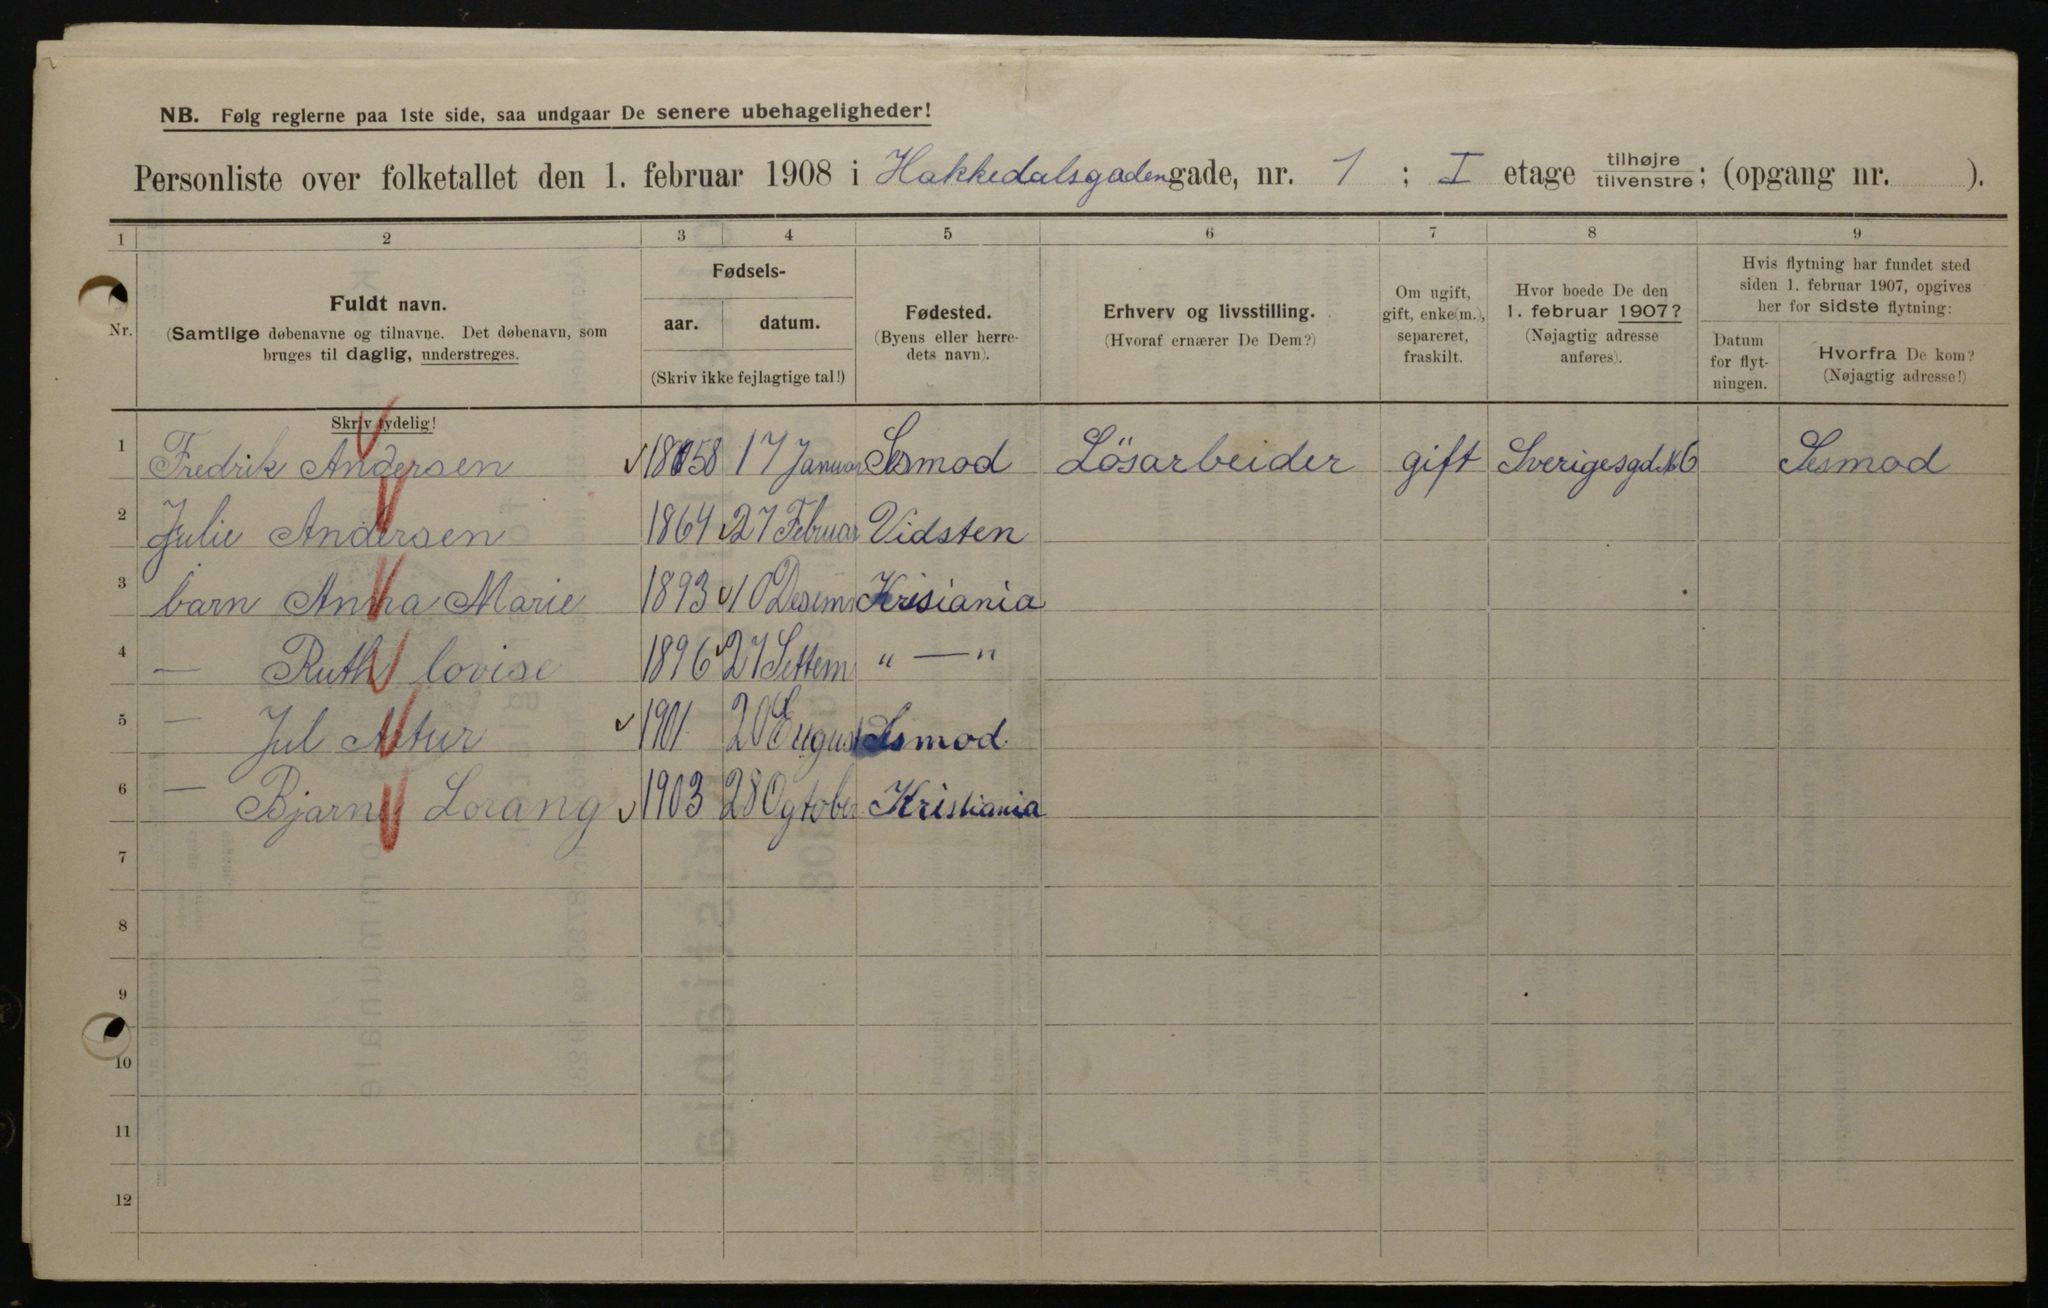 NB. Følg reglerne paa 1ste side, saa undgaar De senere ubehageligheder!
Personliste over folketallet den 1. februar 1908 i Hakkedalsgaden gade, nr. 1 ; I etage tilhøjre tilvenstre; (opgang nr. ).
1 2 3 4 5 6 7 8 9
Nr.
Fuldt navn.
(Samtlige døbenavne og tilnavne. Det døbenavn, som
bruges til daglig, understreges.
Fødsels-
aar. datum.
(Skriv ikke fejlagtige tal!)
Fødested.
(Byens eller herre-
dets navn).
Erhverv og livsstilling.
(Hvoraf ernærer De Dem?)
Om ugift,
gift, enke(m.),
separeret,
fraskilt.
Hvor boede De den
1. februar 1907?
(Nøjagtig adresse
anføres).
Hvis flytning har fundet sted
siden 1. februar 1907, opgives
her for sidste flytning:
Datum
for flyt-
ningen.
Hvorfra De kom?
(Nøjagtig adresse!)
Skriv tydelig!
1 Fredrik Andersen 1858 17 Januar Sesmod Lösarbeider gift Sverigesgd. № 6 Sesmod
2 Julie Andersen 1864 27 Februar Vidsten
3 barn Anna Marie 1893 10 Desem Krisiania
4 — Ruth lovise 1896 27 Settem " — "
5 — Jul Artur 1901 20 Eugust Sesmod.
6 — Bjarne Lorang 1903 28 Ogtober Kristiania
7
8
9
10
11
12